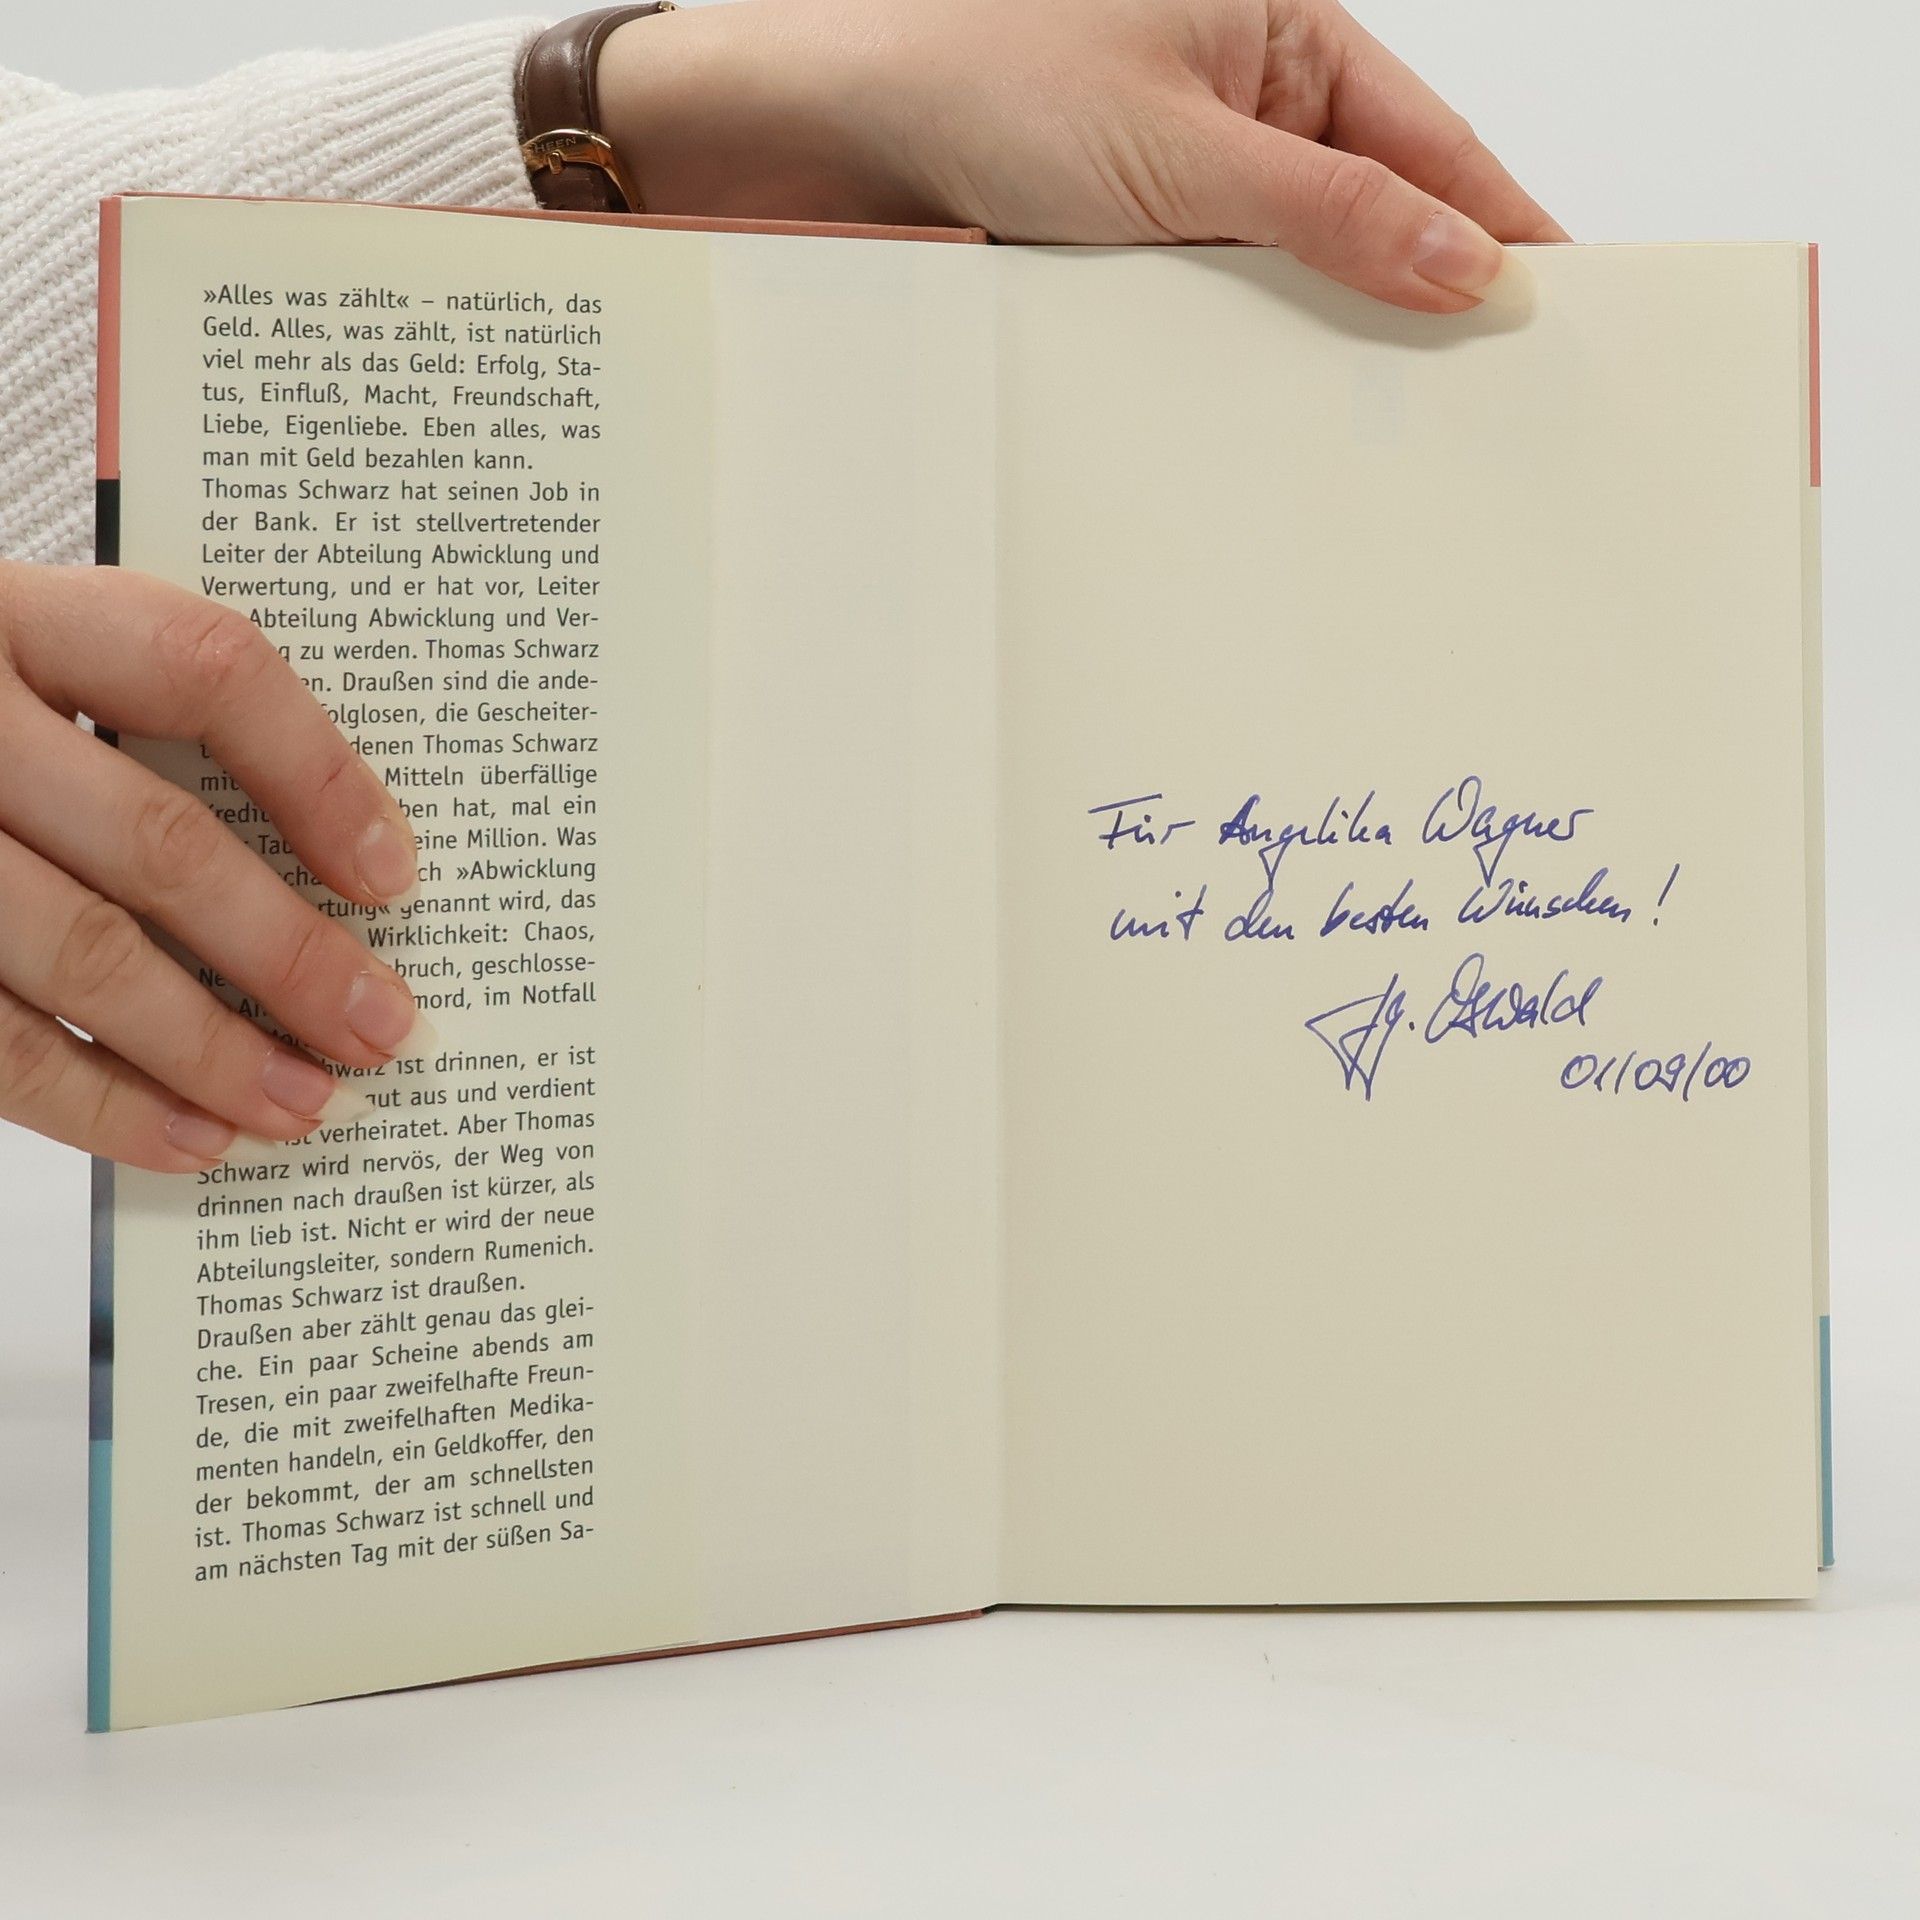 HEEN
»Alles was zählt« – natürlich, das
Geld. Alles, was zählt, ist natürlich
viel mehr als das Geld: Erfolg, Sta-
tus, Einfluß, Macht, Freundschaft,
Liebe, Eigenliebe. Eben alles, was
man mit Geld bezahlen kann.
Thomas Schwarz hat seinen Job in
der Bank. Er ist stellvertretender
Leiter der Abteilung Abwicklung und
Verwertung, und er hat vor, Leiter
Abteilung Abwicklung und Ver-
g zu werden. Thomas Schwarz
en. Draußen sind die ande-
folglosen, die Gescheiter-
denen Thomas Schwarz
mit Mitteln überfällige
ben hat, mal ein
eine Million. Was
ch »Abwicklung
rtung« genannt wird, das
Wirklichkeit: Chaos,
bruch, geschlosse-
mord, im Notfall
hwarz ist drinnen, er ist
gut aus und verdient
ist verheiratet. Aber Thomas
Schwarz wird nervös, der Weg von
drinnen nach draußen ist kürzer, als
ihm lieb ist. Nicht er wird der neue
Abteilungsleiter, sondern Rumenich.
Thomas Schwarz ist draußen.
Draußen aber zählt genau das glei-
che. Ein paar Scheine abends am
Tresen, ein paar zweifelhafte Freun-
de, die mit zweifelhaften Medika-
menten handeln, ein Geldkoffer, den
der bekommt, der am schnellsten
ist. Thomas Schwarz ist schnell und
am nächsten Tag mit der süßen Sa-
Für Angelika Wagner
mit den besten Wünschen!
Gg. Oswald
01/09/00